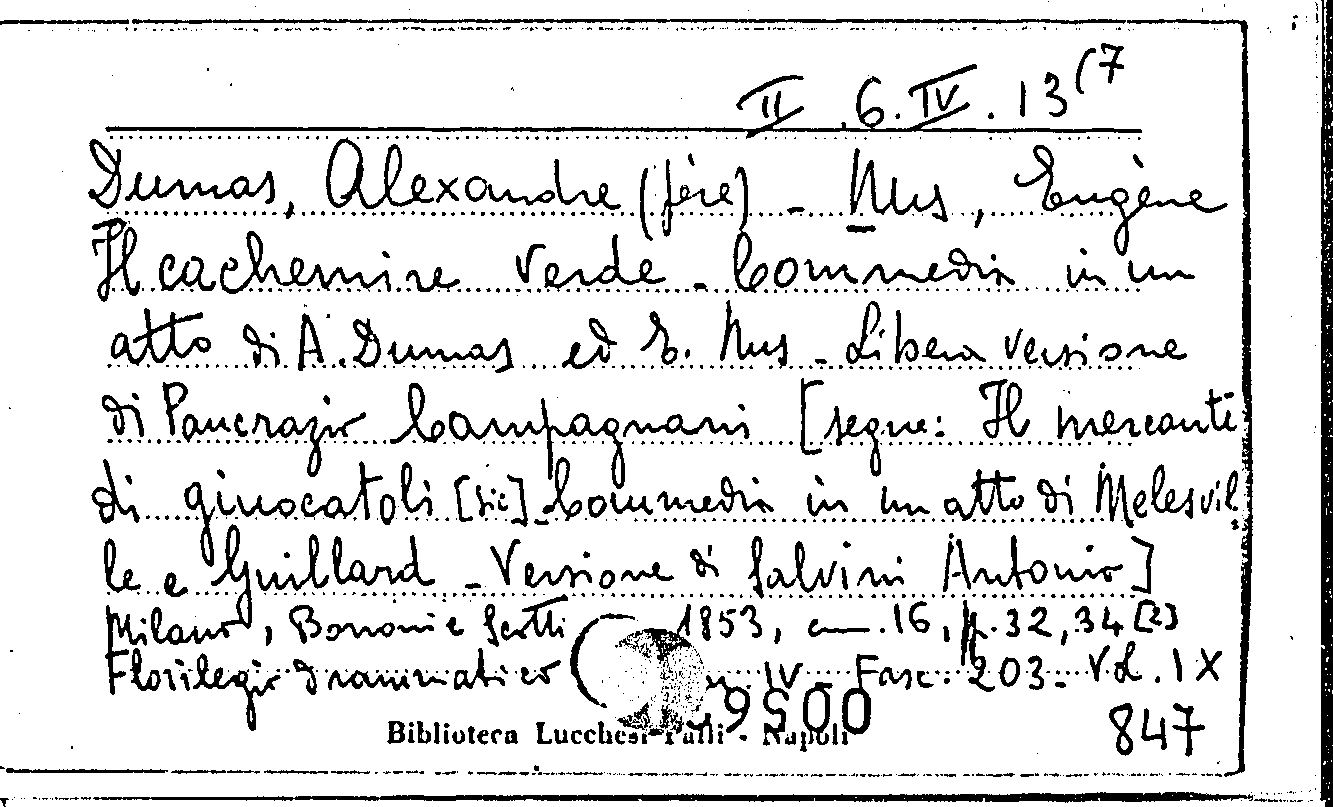 II .6. IV . 13(7
Dumas, Alexandre (père) - Nus, Eugène
Il cachemire verde - Commedia in un
atto di A. Dumas ed E. Nus - Libera versione
di Pancrazio Campagnani [segue: Il mercante
di giuocatoli [sic] - Commedia in un atto di Melesvil-
le e Guillard - Versione di Salvini Antonio]
Milano, Borroni e Scotti 1853, cm. 16, p. 32, 34 [2]
Florilegio drammatico IV - Fasc. 203 - Vol. IX
Biblioteca Lucchesi Palli - Napoli
847